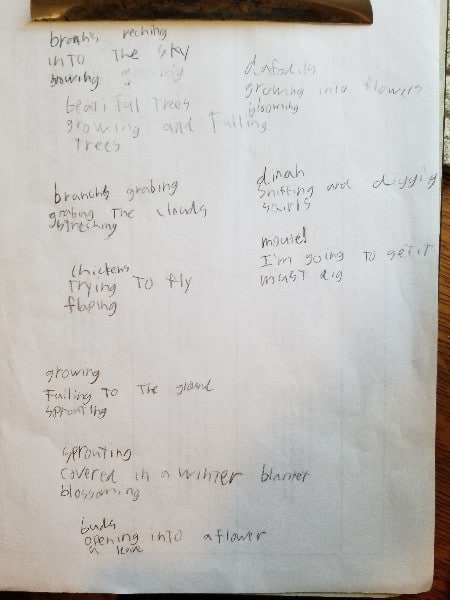 branhs reching
into the sky
bowing growing
beatiful trees
growing and falling
trees
branchs grabing
grabing the clouds
stretching
chickens
trying to fly
flaping
growing
Falling to the ground
sprouting
sprouting
covered in a winter blanket
blossoming
buds
opening into a flower
a leave
dafadils
growing into flowers
blooming
dinah
snifting and diggig
mouse!
I'm going to get it
must dig